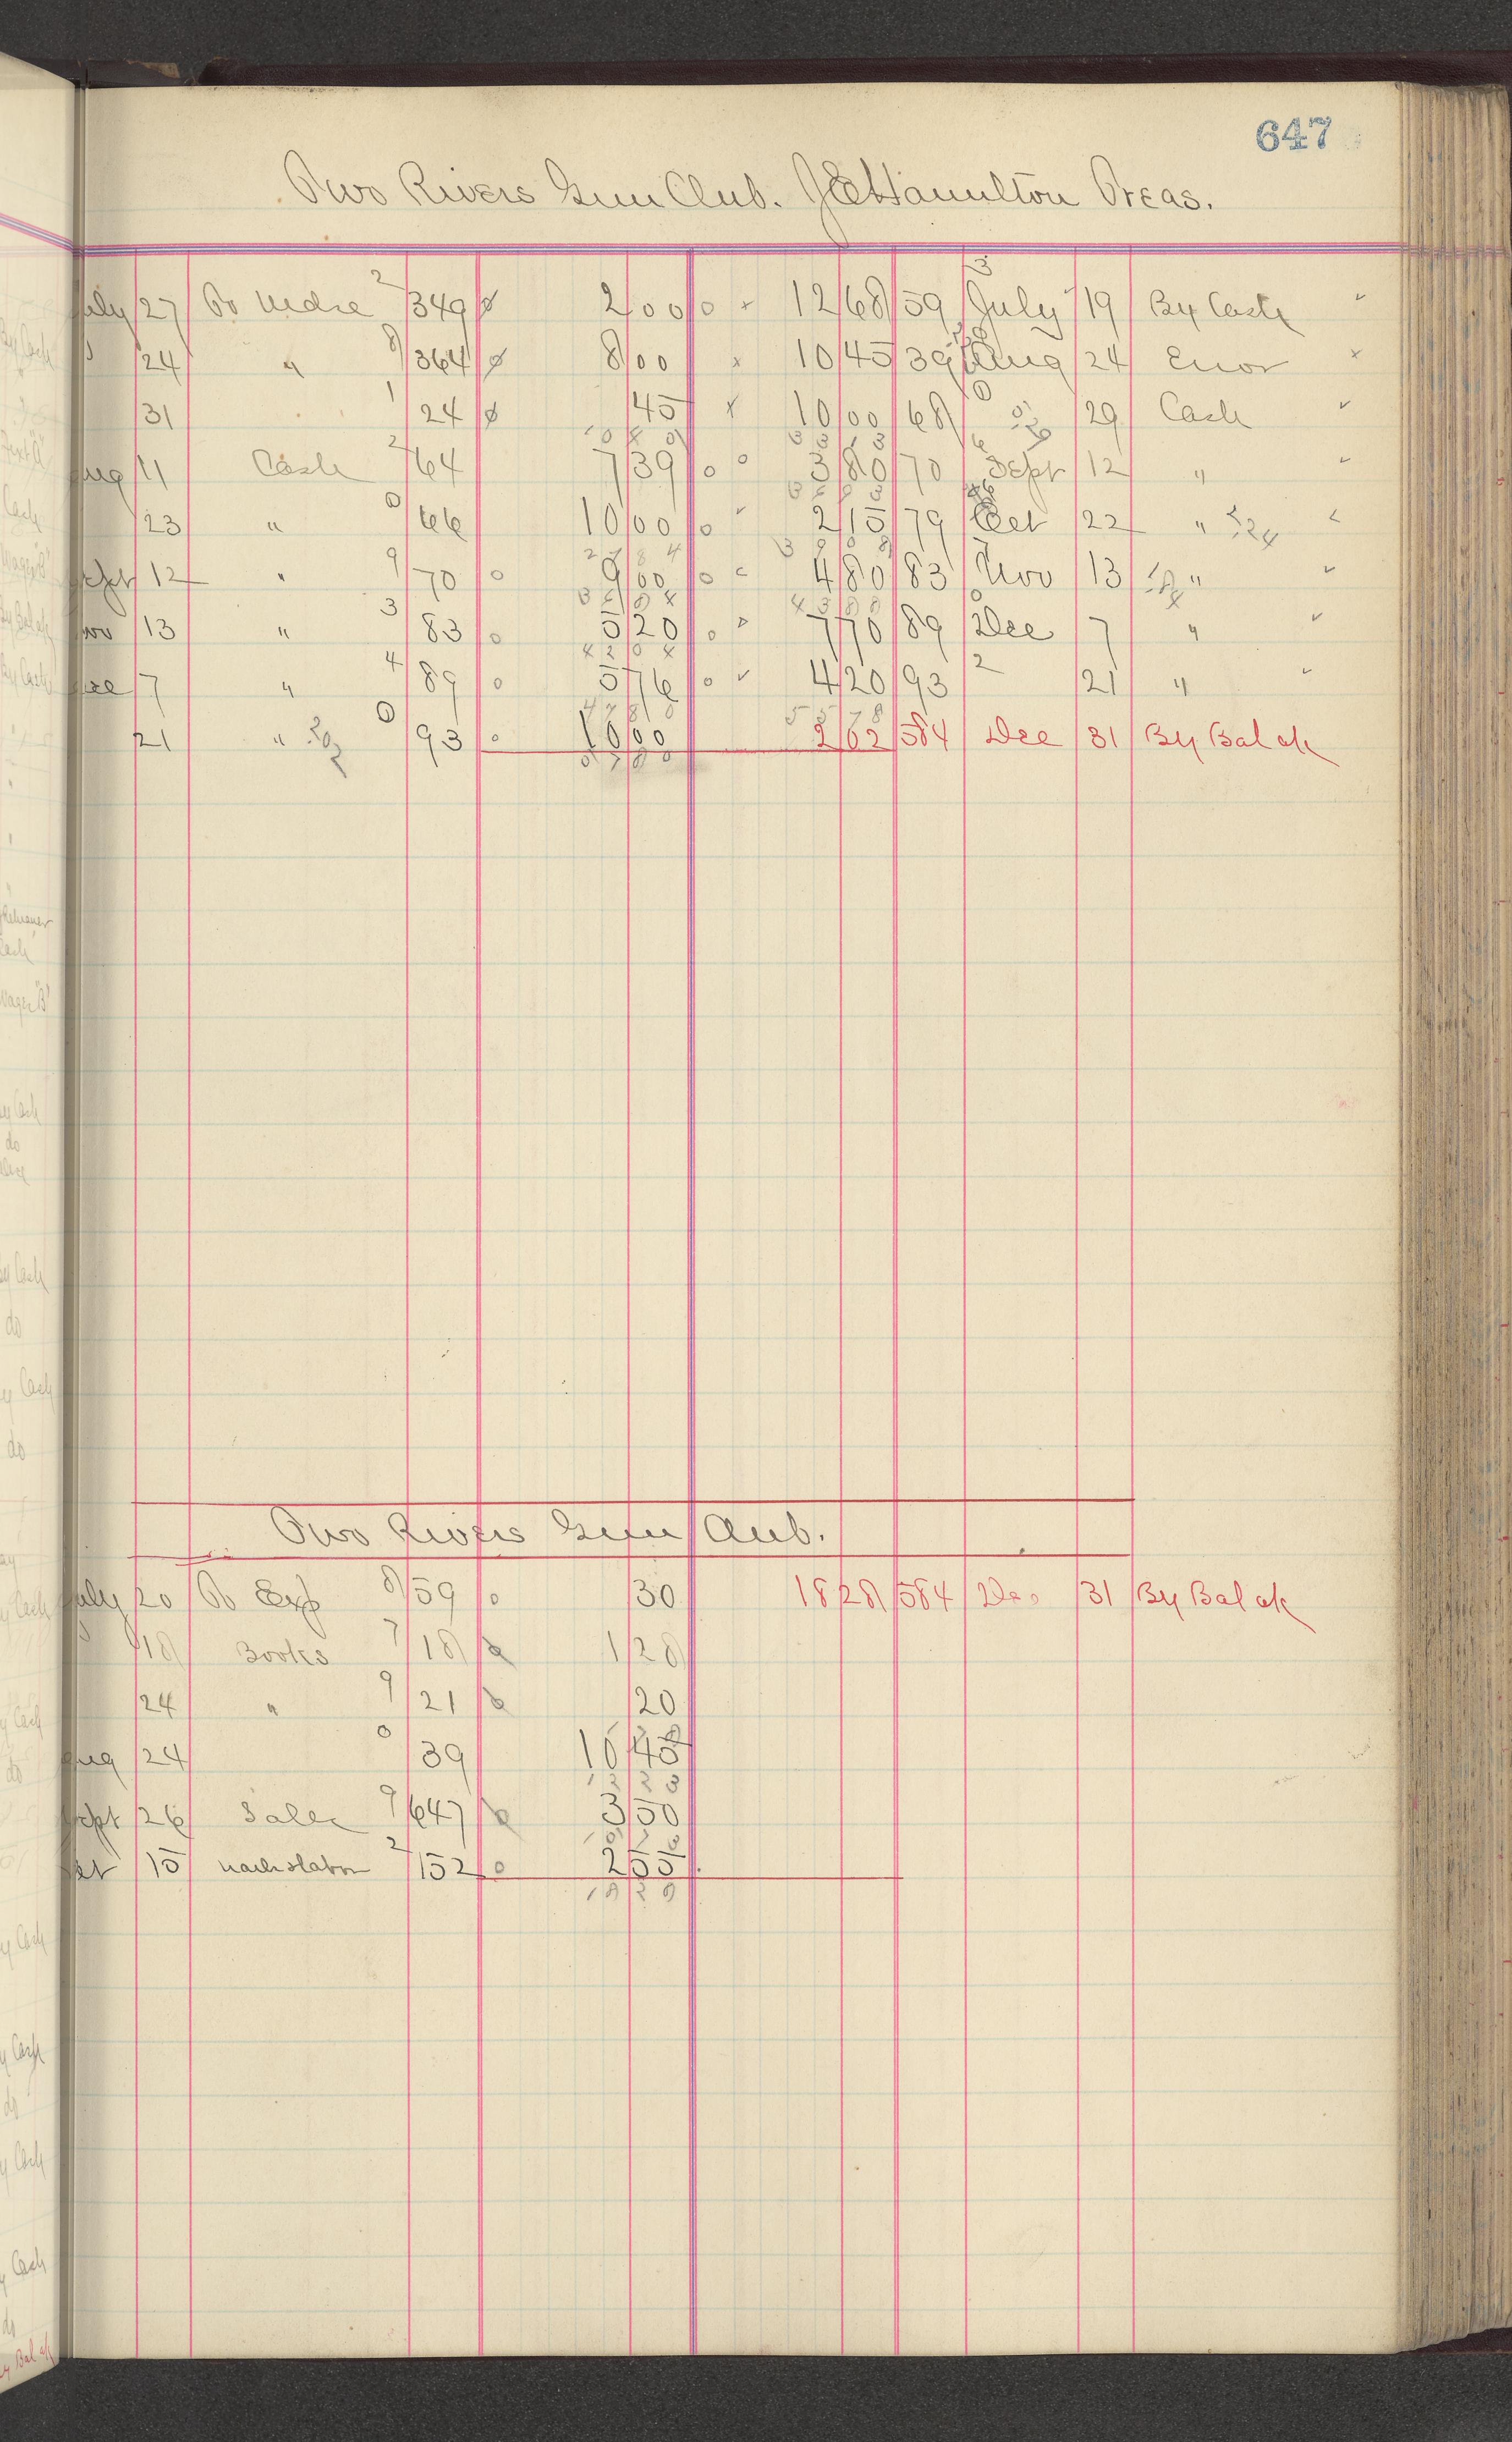 647
Two Rivers Gun Club. J E Hamilton Treas.
July 27 To Mdse 2 349 2 00 12 68 59 July 19 By Cash
" 24 " 8 364 8 00 10 45 39 Aug 24 Error
31 1 24 45 10 00 68 29 Cash
Aug 11 Cash 2 64 7 39 3 80 70 Sept 12 "
23 " 0 66 10 00 2 15 79 Oct 22 "
Sept 12 " 9 70 9 00 4 80 83 Nov 13 "
Nov 13 " 3 83 5 20 7 70 89 Dec 7 "
Dec 7 " 4 89 5 76 4 20 93 21 "
21 " 0 93 10 00 2 62 584 Dec 31 By Bal a/c
Two Rivers Gun Club.
July 20 To Exp 8 59 30 18 28 584 Dec 31 By Bal a/c
" 18 Books 7 18 1 28
24 " 9 21 20
Aug 24 0 39 10 45
Sept 26 Sales 9 647 3 50
Oct 15 2 152 2 55
18 28